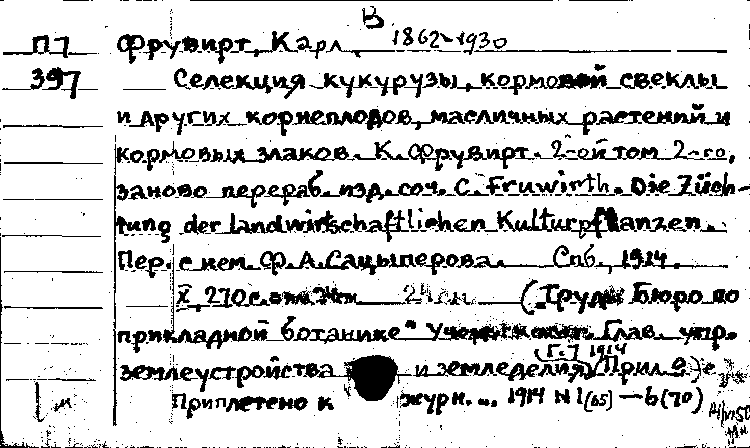 В
П7 Фрувирт, Карл, 1862-1930
397 Селекция кукурузы, кормовой свеклы
и других корнеплодов, масличных растений и
кормовых злаков. К. Фрувирт. 2-ой том 2-го,
заново перераб. изд. соч. C. Fruwirth. Die Züch-
tung der landwirtschaftlichen Kulturpflanzen.
Пер. с нем. Ф. А. Сацыперова. Спб., 1914.
X, 270 с. 24 см
("Труды Бюро по
прикладной ботанике" Глав. упр.
(Г. 7 1914
землеустройства и земледелия) Прил. 9)
Приплетено к журн. 1914 N 1 (65) — 6 (70)